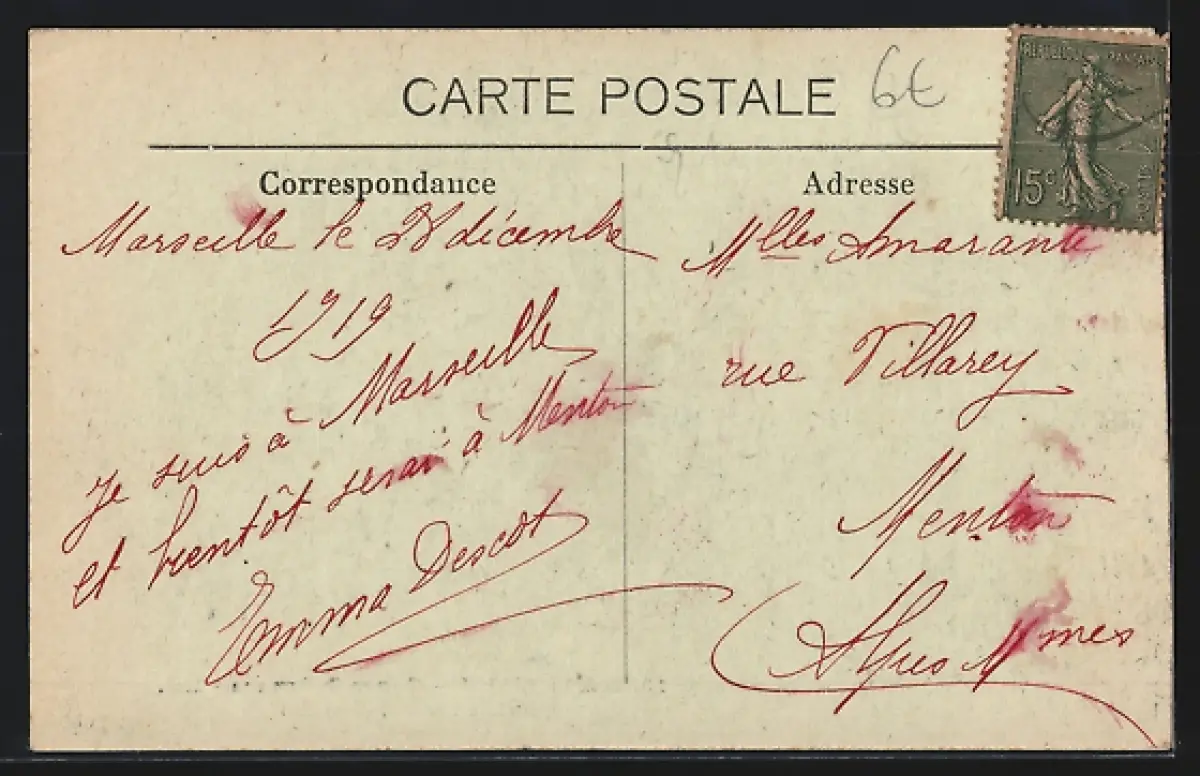 CARTE POSTALE
6€
REPUBLIQUE FRANCAISE
15c
POSTES
Correspondance
Marseille le 28 décembre
1919
je suis à Marseille
et bientôt serai à Menton
Emma Descot
Adresse
Mlles Amarante
rue Villarey
Menton
Alpes Mmes